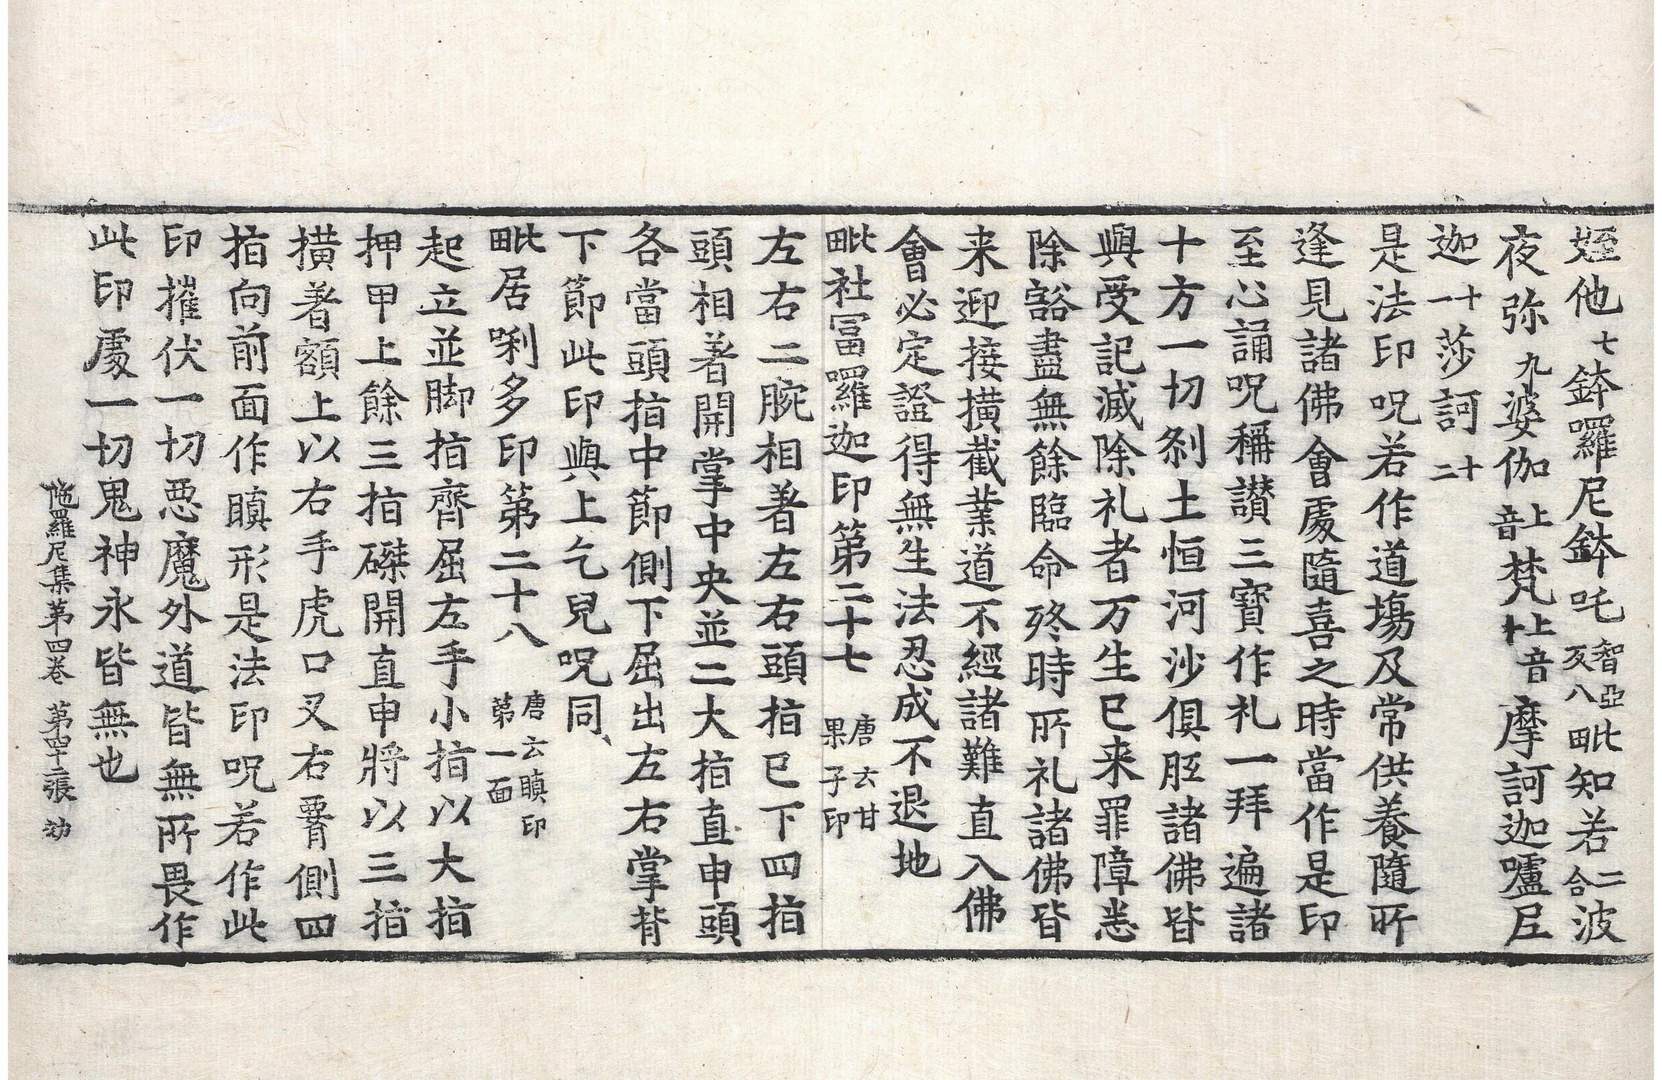 姪他七鉢囉尼鉢吒智亞反八毗知若二合波
夜弥九婆伽上音梵上音十摩訶迦嚧尼
迦十一莎訶十二
是法印呪若作道場及常供養隨所
逢見諸佛會處隨喜之時當作是印
至心誦呪稱讃三寶作礼一拜遍諸
十方一切刹土恒河沙俱胝諸佛皆
與受記滅除礼者万生已来罪障悉
除豁盡無餘臨命終時所礼諸佛皆
来迎接横截業道不經諸難直入佛
會必定證得無生法忍成不退地
毗社冨囉迦印第二十七唐云甘果子印
左右二腕相著左右頭指已下四指
頭相著開掌中央並二大指直申頭
各當頭指中節側下屈出左右掌背
下節此印與上乞兒呪同
毗居唎多印第二十八唐云瞋印第一面
起立並脚指齊屈左手小指以大指
押甲上餘三指磔開直申將以三指
横著額上以右手虎口叉右䏶側四
指向前面作瞋形是法印呪若作此
印摧伏一切惡魔外道皆無所畏作
此印處一切鬼神永皆無也
陁羅尼集第四卷 第四十二張 効